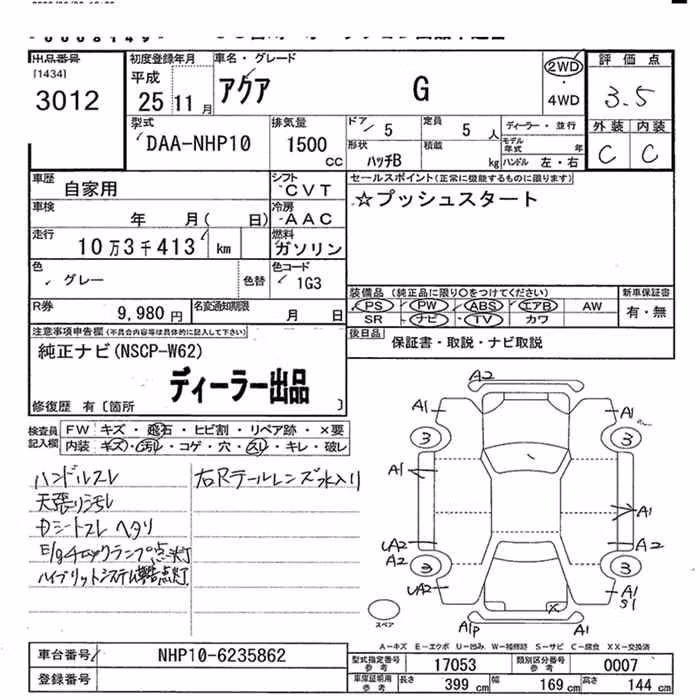 出品番号
[1434]
3012
初度登録年月
平成
25 11 月
車名・グレード
アクア G
2WD
・
4WD
評価点
3.5
外装 内装
C C
型式
DAA-NHP10
排気量
1500
CC
ドア 5
定員 5 人
ディーラー・並行
モデル年式 年
形状 ハッチB
積載 kg
ハンドル 左・右
車歴
自家用
シフト
CVT
セールスポイント(正常に機能するものに限ります)
☆プッシュスタート
車検
年 月( 日)
冷房
AAC
走行
10万3千413 km
燃料
ガソリン
色
グレー
色替
色コード
1G3
装備品 (純正品に限り○をつけてください)
PS PW ABS エアB AW
SR ナビ TV カワ
新車保証書
有・無
R券
9,980円
名変通知期限
月 日
後日品
保証書・取説・ナビ取説
注意事項申告欄(不具合内容等は具体的に記入して下さい)
純正ナビ(NSCP-W62)
ディーラー出品
修復歴 有〔箇所 〕
検査員記入欄
FW キズ・飛石・ヒビ割・リペア跡・×要
内装 キズ・汚レ・コゲ・穴・スレ・キレ・破レ
ハンドルスレ
天張り汚レ
Dシートスレ ヘタリ
E/gチェックランプ点灯
ハイブリットシステム警告点灯
右Rテールレンズ水入り
A2
A1
A1
3
3
A1
A1
UA2
A2
A2
3
3
UA2
A1
S1
スペア
A1P
A1
A-キズ E-エクボ U-凹み、W-補修跡 S-サビ C-腐食 XX-交換済
車台番号
NHP10-6235862
登録番号
型式指定番号 参考
17053
類別区分番号 参考
0007
車庫証明用 参考
長さ 399 cm
幅 169 cm
高さ 144 cm